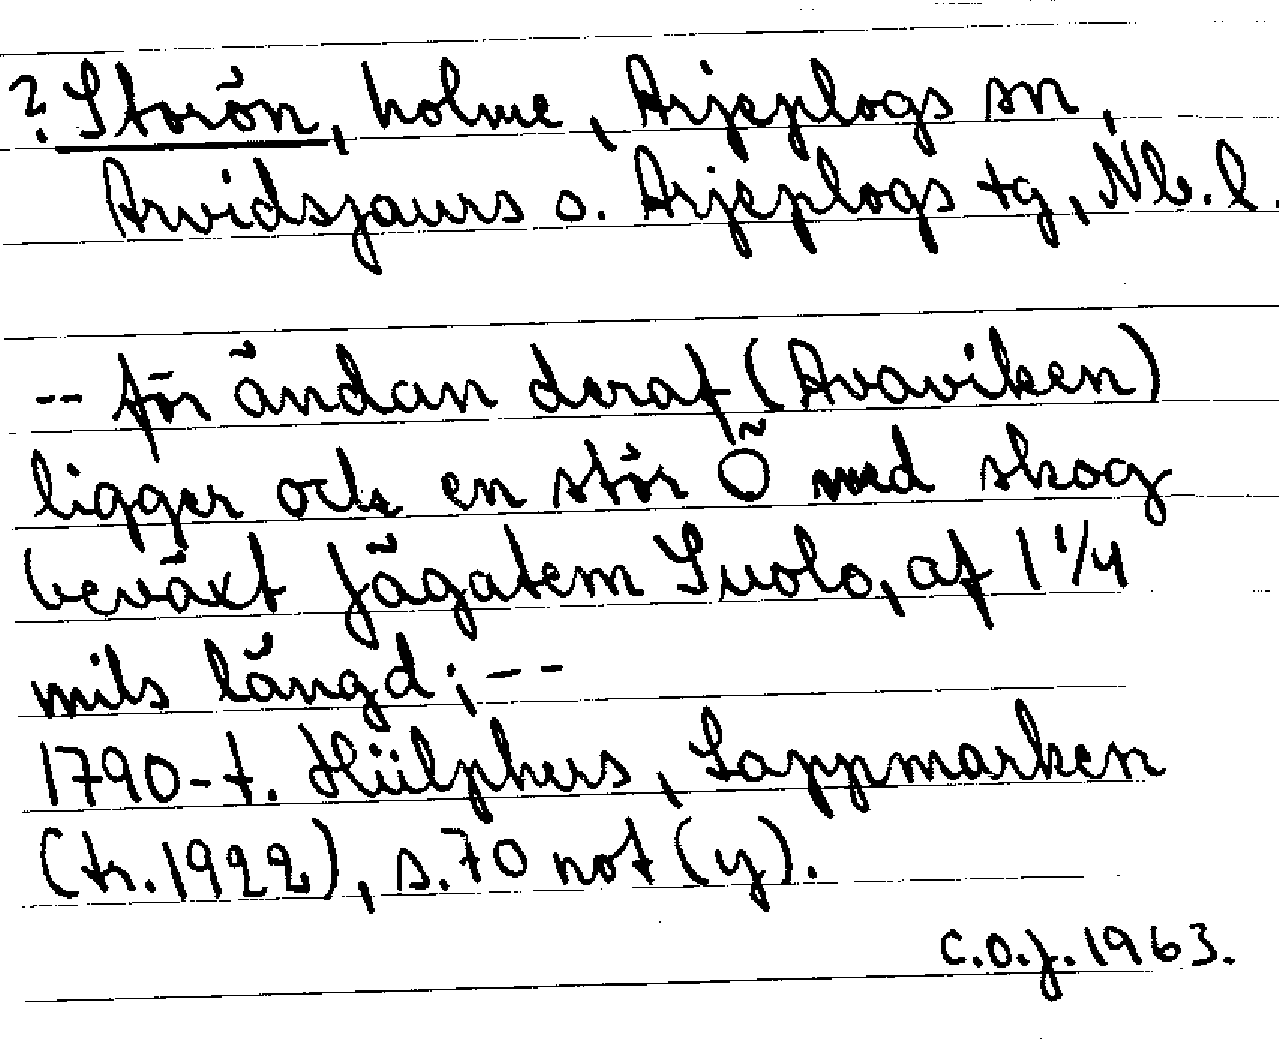 ? Storön, holme, Arjeplogs sn,
Arvidsjaurs o. Arjeplogs tg, Nb. l.
-- för ändan deraf (Avaviken)
ligger ock en stör Ö med skog
beväxt Jägatem Suolo, af 1 1/4
mils längd; --
1790-t. Hülphers, Lappmarken
(tr. 1922), s. 70 not (y).
C.O.J. 1963.